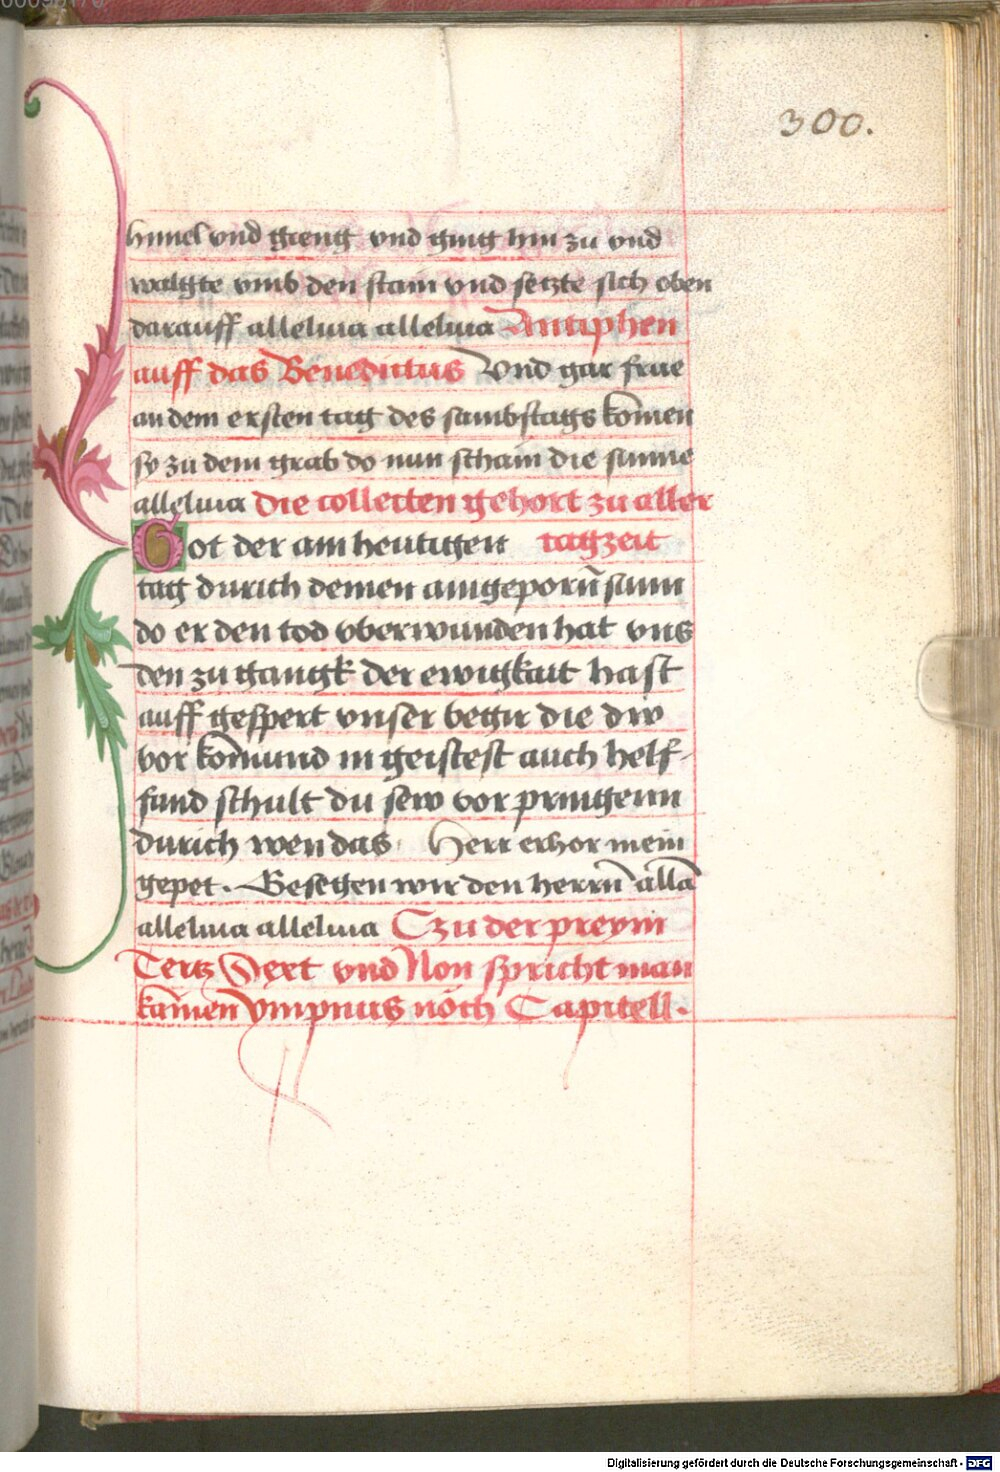 300.
himel vnd gieng vnd ging hin zu vnd
walgte vmb den stain vnd setzte sich oben
darauff alleluia alleluia Antiphen
auff das Benedictus Vnd gar frue
an dem ersten tag des sambstags komen
sy zu dem grab do nun schain die sunne
alleluia Die collecten gehort zu aller
Got der am heutigen tagzeit
tag durich deinen aingeporn sunn
do er den tod vberwunden hat vns
den zu gangk der ewigkait hast
auff gespert vnser begir die diw
vor komund in geistest auch helf-
fund schult du sew vor pringenn
durich wen das Herr erhor mein
gepet. Gesegen wir den herrn alla
alleluia alleluia Czu der preym
Tertz Sext vnd Non spricht man
kainen Ympnus noch Capitell.
Digitalisierung gefördert durch die Deutsche Forschungsgemeinschaft - DFG